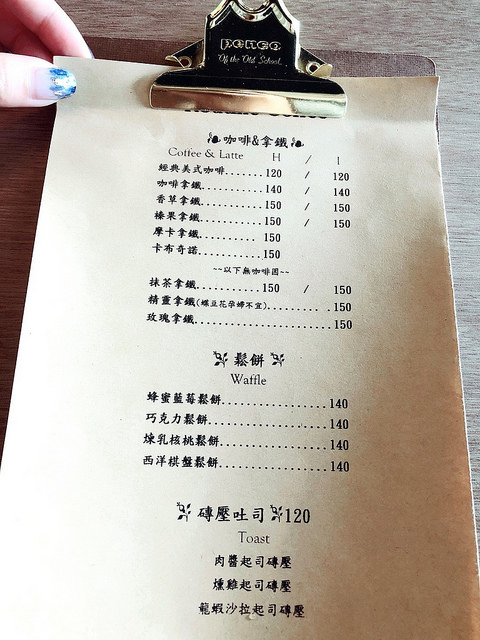 penco
"Of the Old School."
咖啡&拿鐵
Coffee & Latte H / I
經典美式咖啡.......120 / 120
咖啡拿鐵...........140 / 140
香草拿鐵...........150 / 150
榛果拿鐵...........150 / 150
摩卡拿鐵.......... 150
卡布奇諾...........150
~~以下無咖啡因~~
抹茶拿鐵...........150 / 150
精靈拿鐵(蝶豆花孕婦不宜)...........150
玫瑰拿鐵.......................150
鬆餅
Waffle
蜂蜜藍莓鬆餅...................140
巧克力鬆餅.....................140
煉乳核桃鬆餅...................140
西洋棋盤鬆餅...................140
磚壓吐司 120
Toast
肉醬起司磚壓
燻雞起司磚壓
龍蝦沙拉起司磚壓